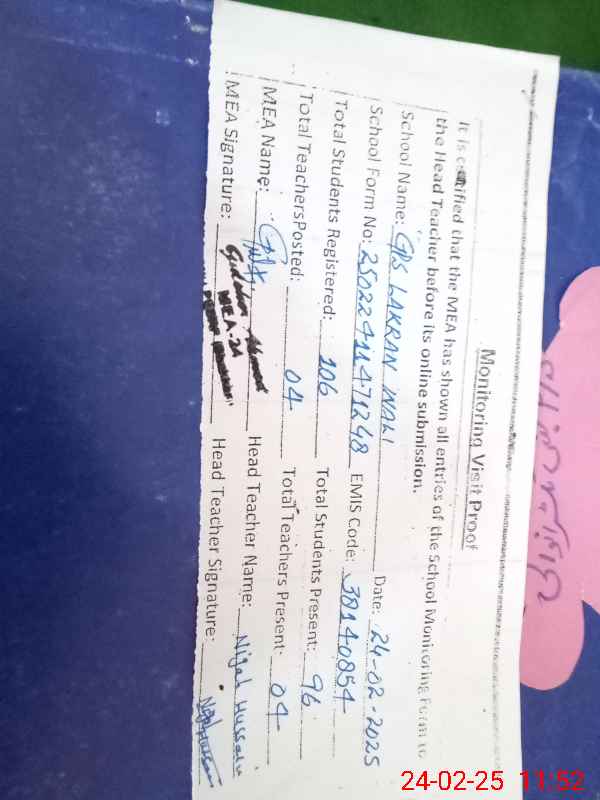 Monitoring Visit Proof
It is certified that the MEA has shown all entries of the School Monitoring Form to
the Head Teacher before its online submission.
School Name: GPS LAKRAN WALI Date: 24-02-2025
School Form No: EMIS Code: 38140854
Total Students Registered: 106 Total Students Present: 96
Total TeachersPosted: 04 Total Teachers Present: 04
MEA Name: Head Teacher Name: Nijal Hussain
MEA Signature: Head Teacher Signature:
MEA-24
24-02-25 11:52